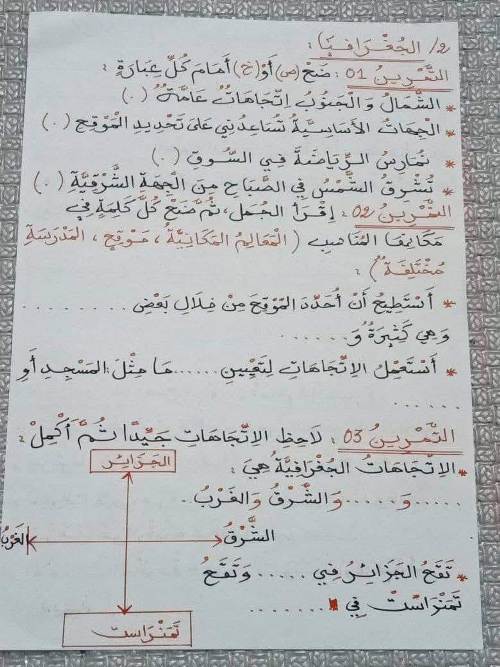 2/ الجُغْرَافِيَا :
التَّمْرِينُ 01 : ضَعْ (ص) أَوْ (خ) أَمَامَ كُلِّ عِبَارَةٍ :
* الشَّمَالُ وَالجَنُوبُ اِتِّجَاهَاتٌ عَامَّةٌ (.)
* الجِهَاتُ الأَسَاسِيَّةُ تُسَاعِدُنِي عَلَى تَحْدِيدِ المَوْقِعِ (.)
* نُمَارِسُ الرِّيَاضَةَ فِي السُّوقِ (.)
* تُشْرِقُ الشَّمْسُ فِي الصَّبَاحِ مِنَ الجِهَةِ الشَّرْقِيَّةِ (.)
التَّمْرِينُ 02 : اِقْرَأْ الجُمَلَ، ثُمَّ ضَعْ كُلَّ كَلِمَةٍ فِي
مَكَانِهَا المُنَاسِبِ ( المَعَالِمِ المَكَانِيَّةُ ، مَوْقِعِ ، المَدْرَسَةِ
مُخْتَلِفَةٌ ) :
* أَسْتَطِيعُ أَنْ أُحَدِّدَ المَوْقِعَ مِنْ خِلَالِ بَعْضِ ........
وَهِيَ كَثِيرَةٌ وَ .......
* أَسْتَعْمِلُ الاِتِّجَاهَاتِ لِتَعْيِينِ ...... مَا مِثْلَ : المَسْجِدِ أَوِ
......
التَّمْرِينُ 03 : لَاحِظِ الاِتِّجَاهَاتِ جَيِّدًا ثُمَّ أَكْمِلْ :
الاِتِّجَاهَاتُ الجُغْرَافِيَّةُ هِيَ :
...... وَ ...... وَالشَّرْقُ وَالغَرْبُ .
الجَزَائِر
الشَّرْقُ
الغَرْبُ
تَمَنْرَاسَت
* تَقَعُ الجَزَائِرُ فِي ...... وَتَقَعُ
تَمَنْرَاسْت فِي .......